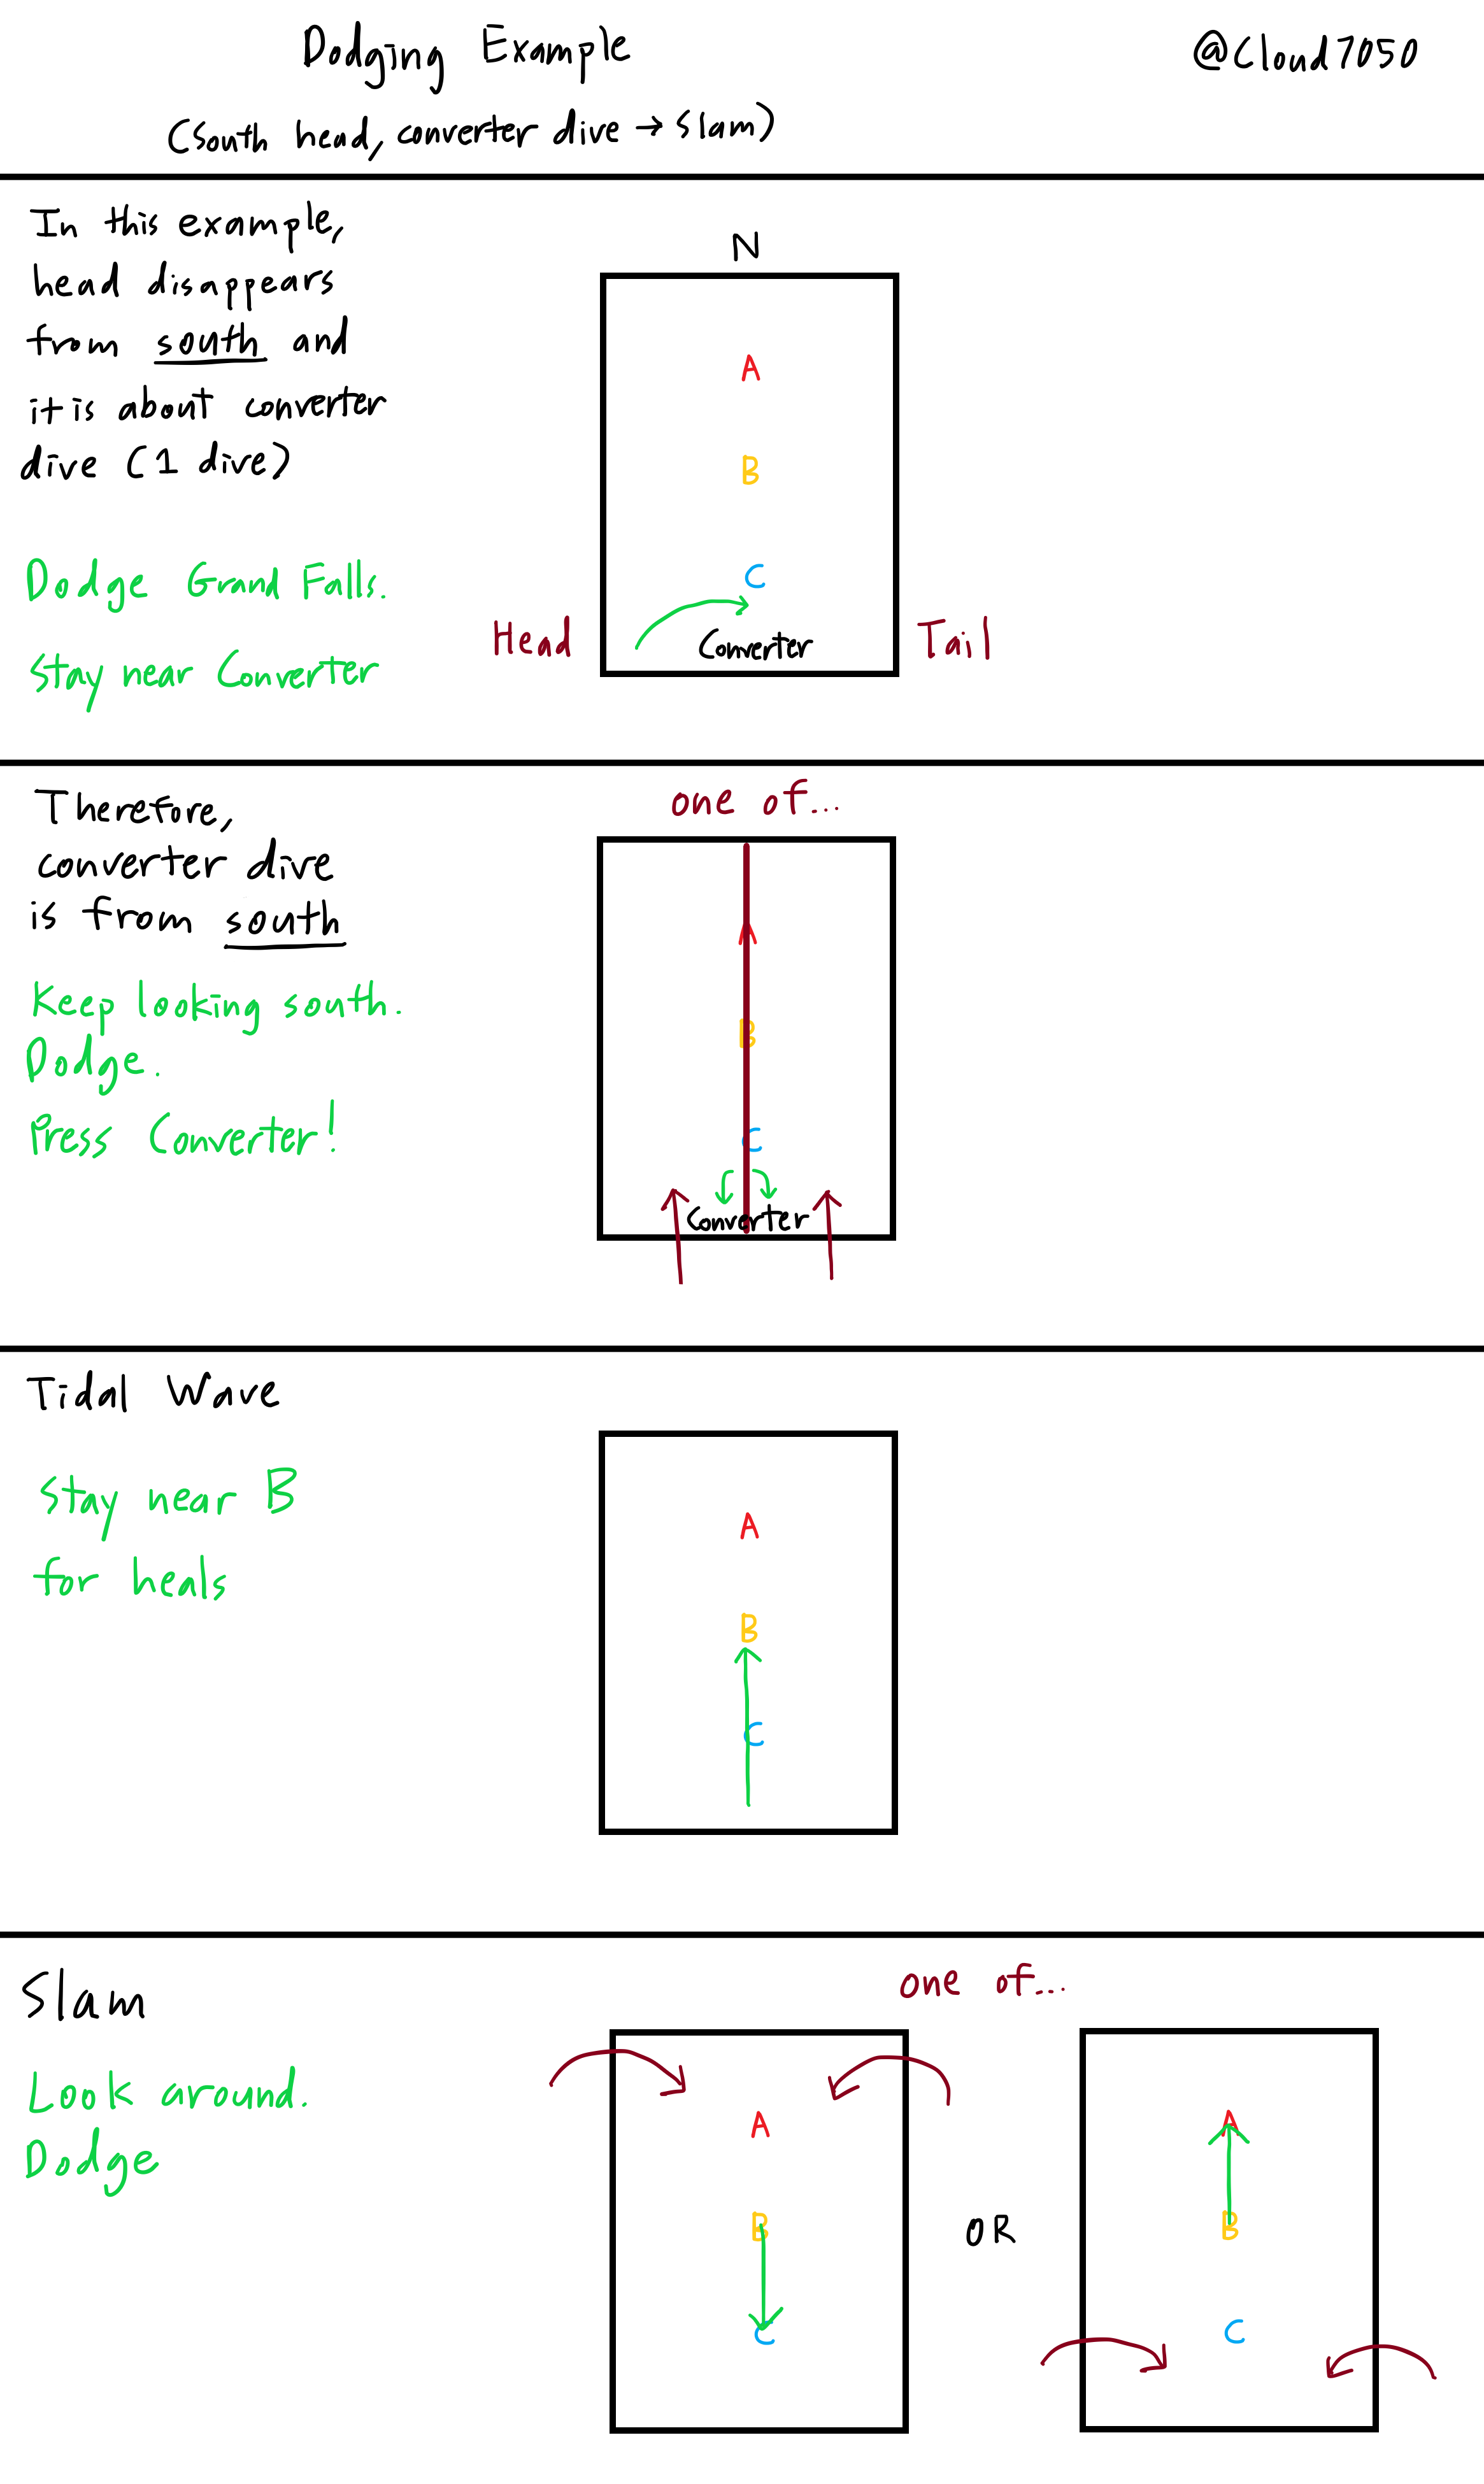 Dodging Example
@Cloud7050
(South head, converter dive → slam)
In this example,
head disappears
from south and
it is about converter
dive (1 dive)
Dodge Grand Falls.
Stay near Converter
N
A
B
C
Head
Converter
Tail
Therefore,
converter dive
is from south
Keep looking south.
Dodge.
Press Converter!
one of...
A
B
C
Converter
Tidal Wave
Stay near B
for heals
A
B
C
Slam
Look around.
Dodge
one of...
A
B
C
OR
A
B
C